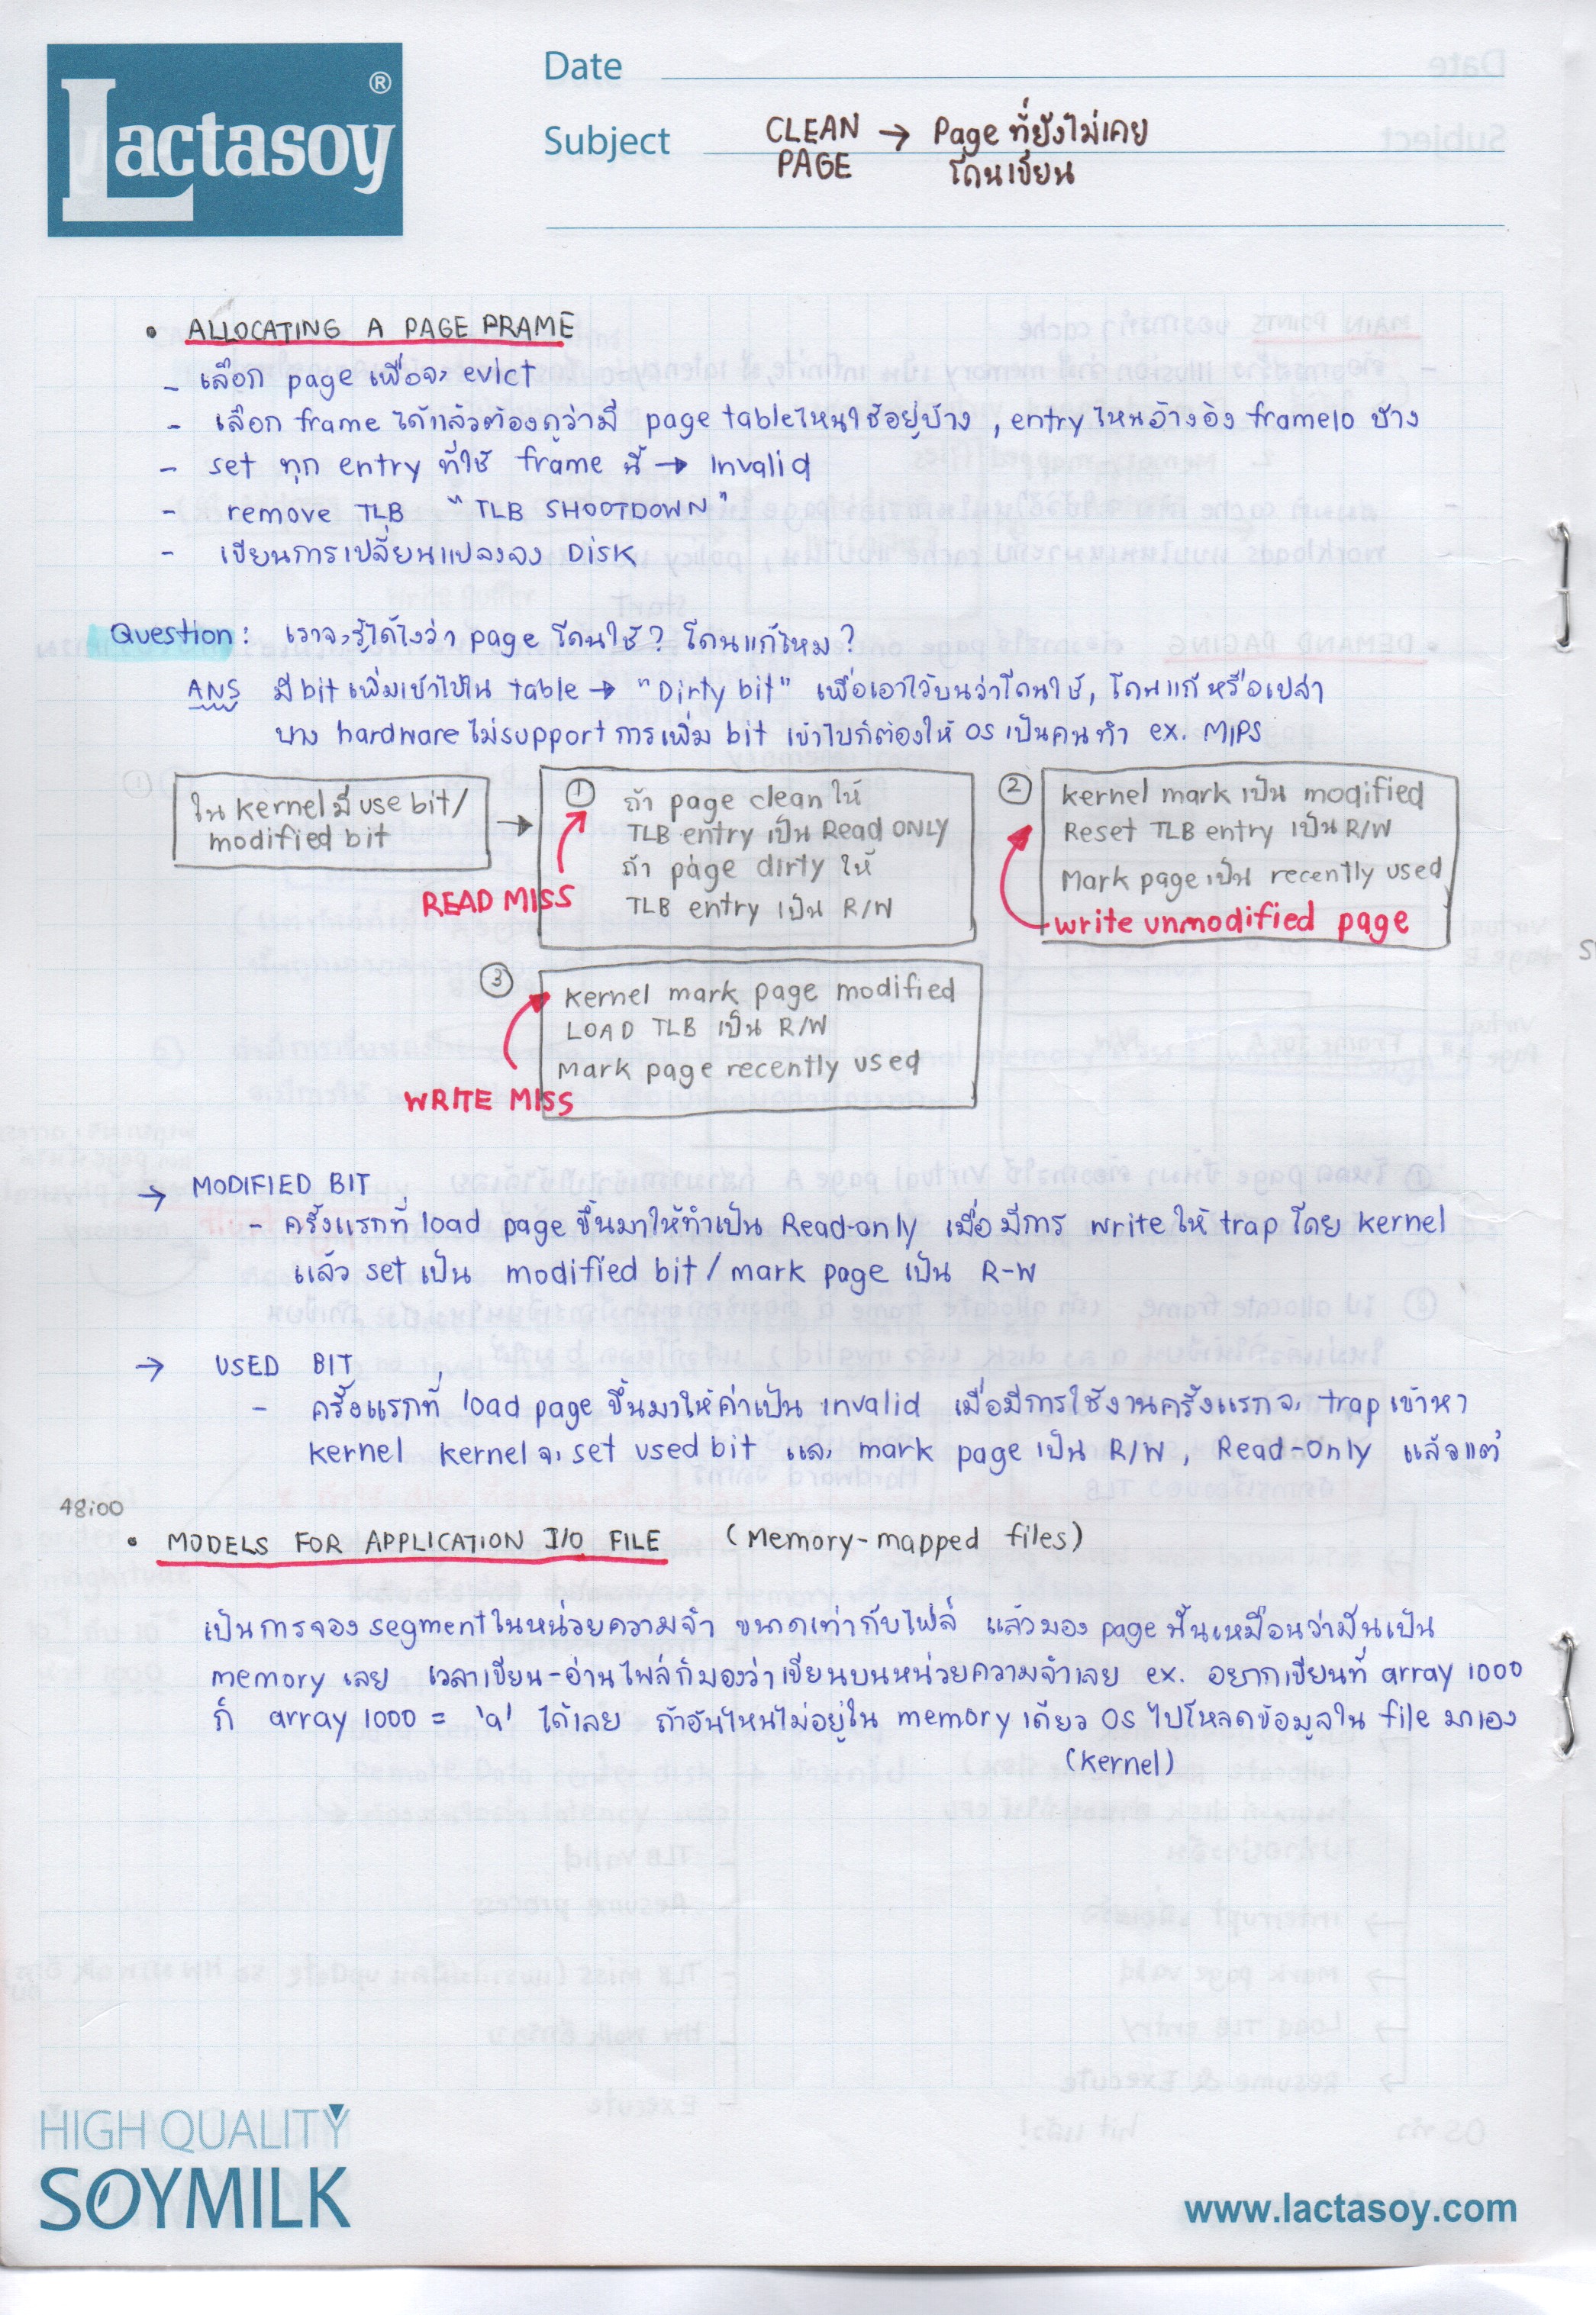 Lactasoy®
Date
Subject
CLEAN → Page ที่ยังไม่เคย
PAGE โดนเขียน
• ALLOCATING A PAGE PRAME
- เลือก page เพื่อจะ evict
- เลือก frame ได้แล้วต้องดูว่ามี page table ไหนใช้อยู่บ้าง , entry ไหนอ้างอิง frame10 บ้าง
- set ทุก entry ที่ใช้ frame นี้ → Invalid
- remove TLB "TLB SHOOTDOWN"
- เขียนการเปลี่ยนแปลงลง Disk
Question : เราจะรู้ได้ไงว่า page โดนใช้? โดนแก้ไหม?
ANS มี bit เพิ่มเข้าไปใน table → "Dirty bit" เพื่อเอาไว้บนว่าโดนใช้, โดนแก้หรือเปล่า
บาง hardware ไม่ support การเพิ่ม bit เข้าไปก็ต้องให้ OS เป็นคนทำ ex. MIPS
ใน kernel มี use bit/
modified bit
→
① ถ้า page clean ให้
TLB entry เป็น Read ONLY
ถ้า page dirty ให้
TLB entry เป็น R/W
READ MISS
② kernel mark เป็น modified
Reset TLB entry เป็น R/W
Mark page เป็น recently used
write unmodified page
③ kernel mark page modified
LOAD TLB เป็น R/W
Mark page recently used
WRITE MISS
→ MODIFIED BIT
- ครั้งแรกที่ load page ขึ้นมาให้ทำเป็น Read-only เมื่อมีการ write ให้ trap โดย kernel
แล้ว set เป็น modified bit / mark page เป็น R-W
→ USED BIT
- ครั้งแรกที่ load page ขึ้นมาให้ค่าเป็น invalid เมื่อมีการใช้งานครั้งแรกจะ trap เข้าหา
kernel kernel จะ set used bit และ mark page เป็น R/W , Read-only แล้วแต่
48:00
• MODELS FOR APPLICATION I/O FILE (Memory-mapped files)
เป็นการจอง segment ในหน่วยความจำ ขนาดเท่ากับไฟล์ แล้วมอง page นั้นเหมือนว่ามันเป็น
memory เลย เวลาเขียน-อ่านไฟล์ก็มองว่าเขียนบนหน่วยความจำเลย ex. อยากเขียนที่ array 1000
ก็ array 1000 = 'a' ได้เลย ถ้าอันไหนไม่อยู่ใน memory เดี๋ยว OS ไปโหลดข้อมูลใน file มาเอง
(kernel)
HIGH QUALITY
SOYMILK
www.lactasoy.com